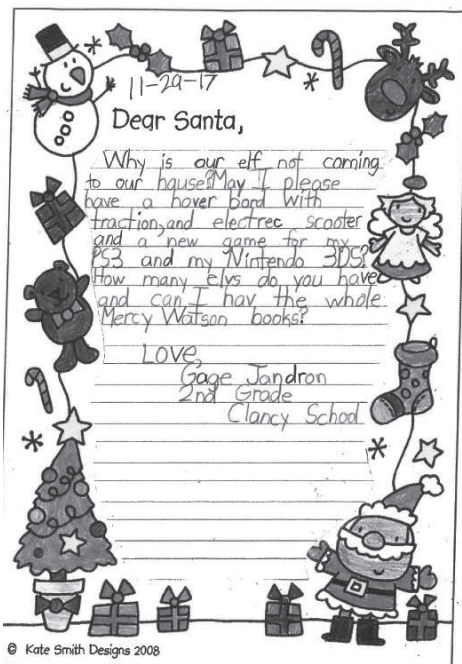 11-29-17
Dear Santa,
Why is our elf not coming
to our hause? May I please
have a hover bord with
traction, and electrec scooter
and a new game for my
PS3 and my Nintendo 3DS?
How many elvs do you have
and can I hav the whole
Mercy Watson books?
Love,
Gage Jandron
2nd Grade
Clancy School
© Kate Smith Designs 2008